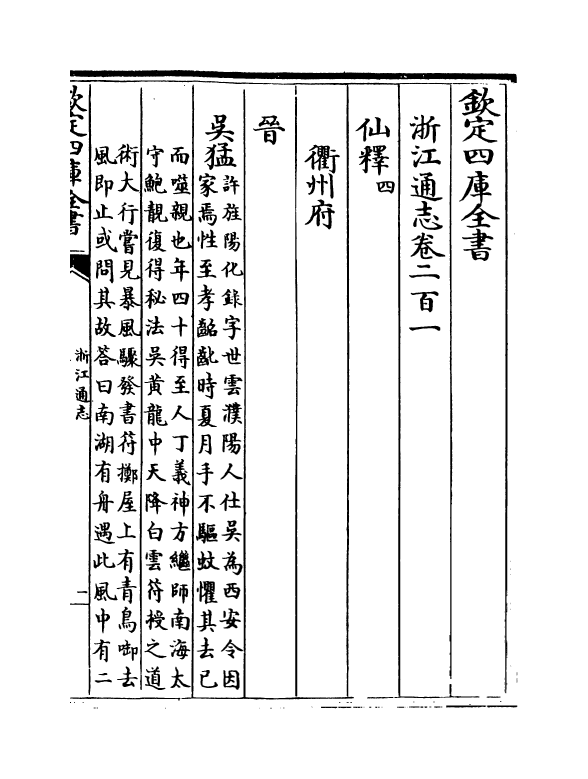 欽定四庫全書
浙江通志卷二百一
仙釋四
衢州府
晉
吳猛許旌陽化錄字世雲濮陽人仕吳為西安令因
家焉性至孝齠齔時夏月手不驅蚊懼其去已
而噬親也年四十得至人丁義神方繼師南海太
守鮑靚復得秘法吳黃龍中天降白雲符授之道
術大行嘗見暴風驟發書符擲屋上有青鳥啣去
風即止或問其故答曰南湖有舟遇此風中有二
欽定四庫全書
浙江通志
一